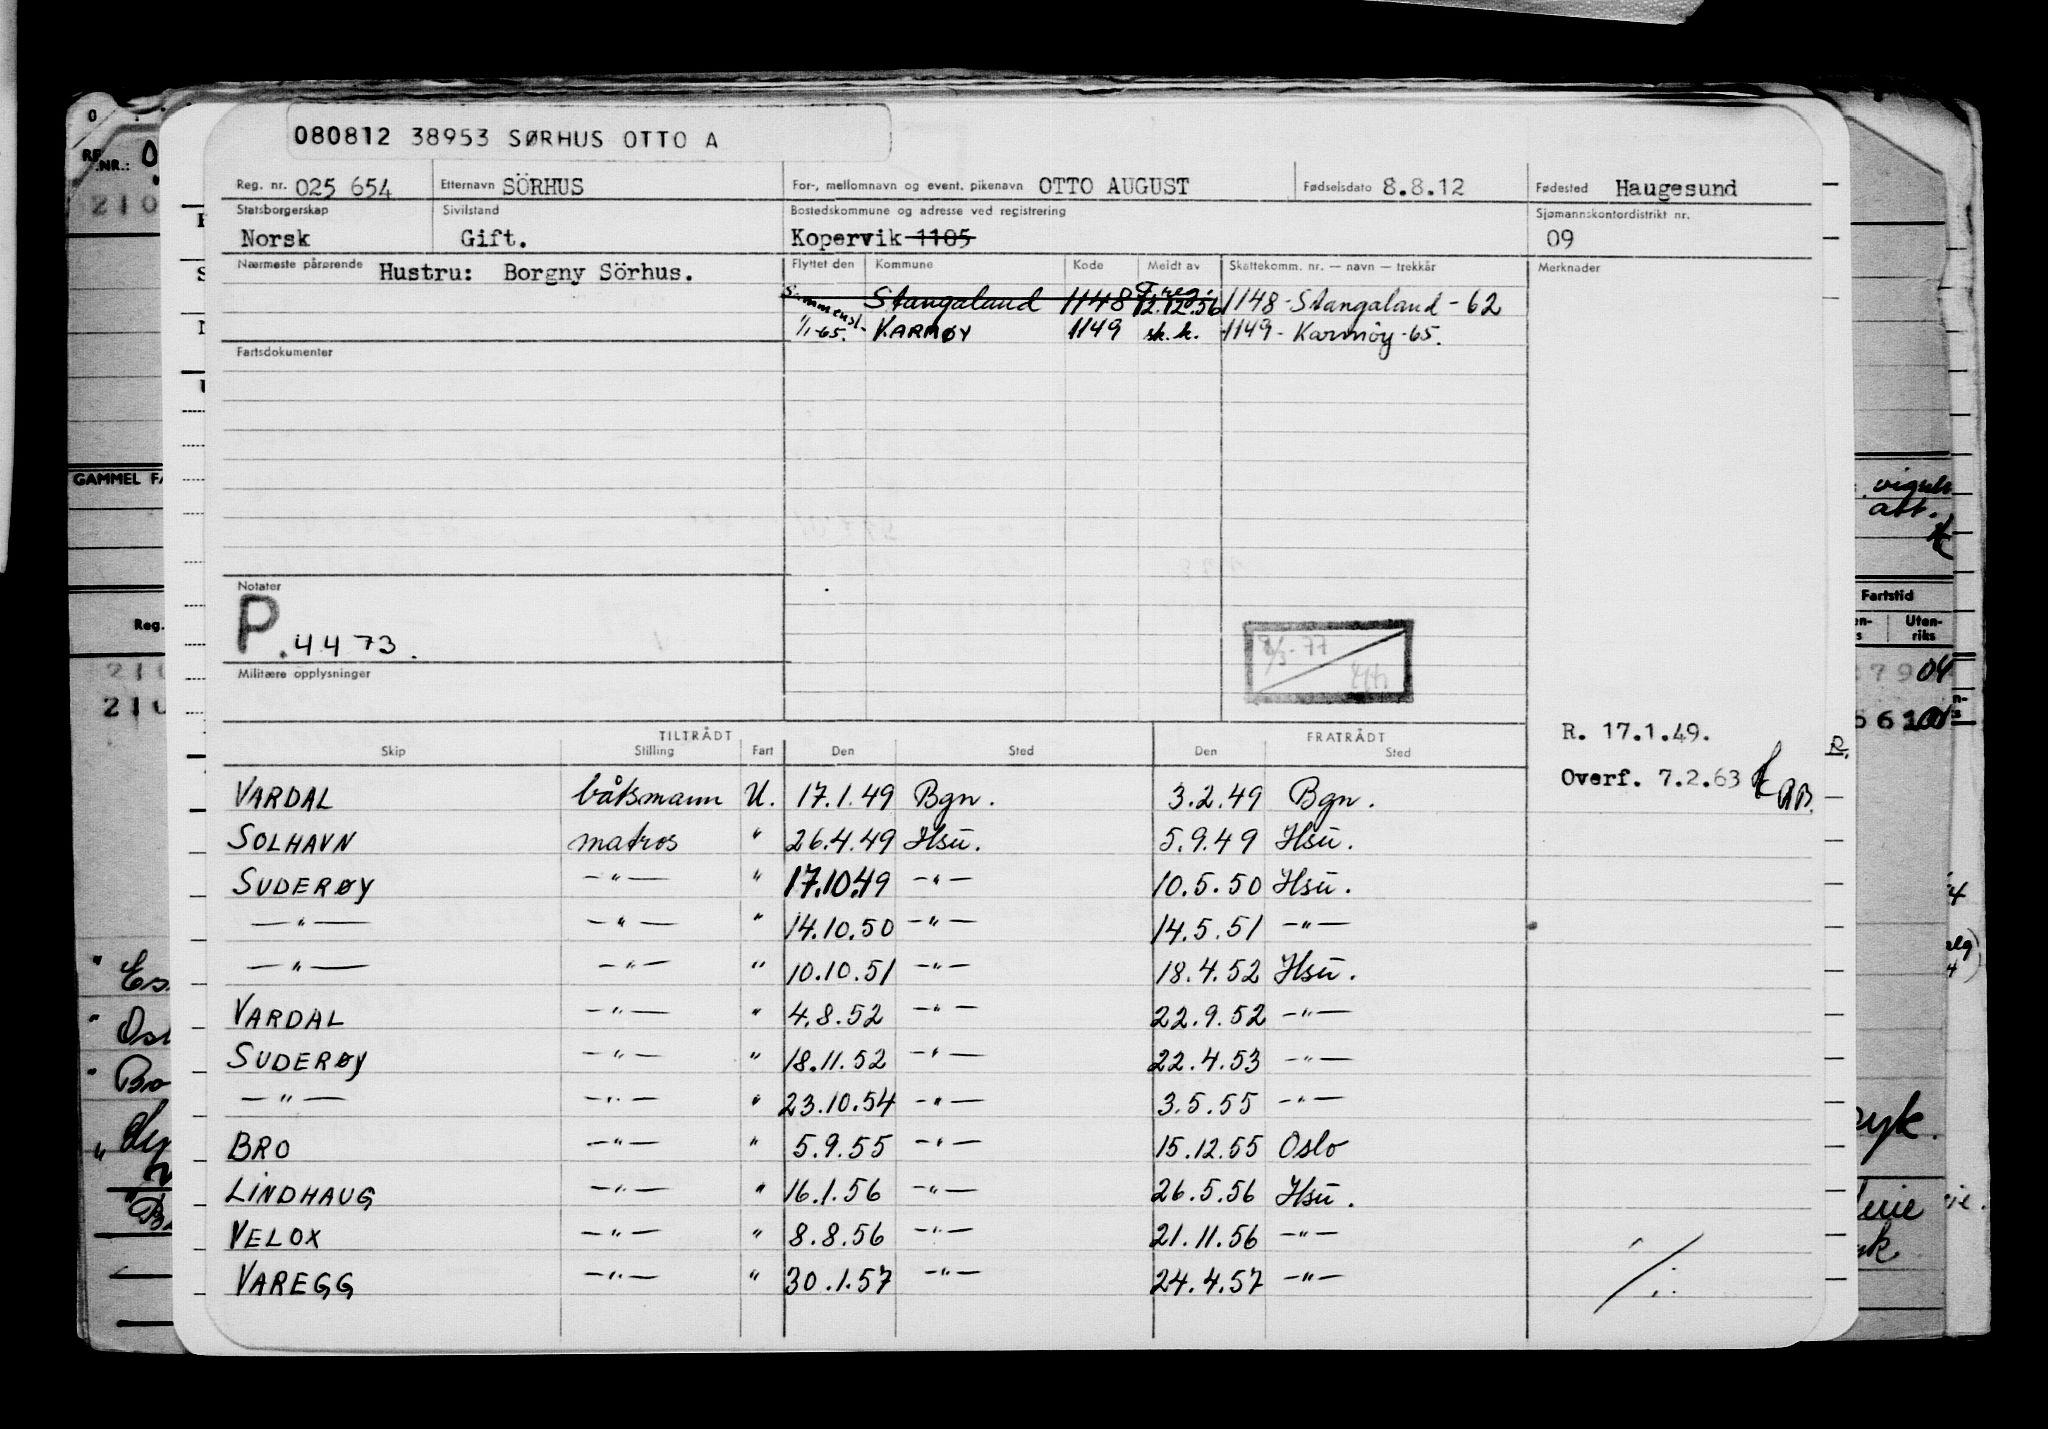 080812 38953 SØRHUS OTTO A
Reg. nr. 025 654 Etternavn SÖRHUS For-, mellomnavn og event. pikenavn OTTO AUGUST Fødselsdato 8.8.12 Fødested Haugesund
Statsborgerskap Sivilstand Bostedskommune og adresse ved registrering Sjømannskontordistrikt nr.
Norsk Gift. Kopervik 1105 09
Nærmeste pårørende Hustru: Borgny Sörhus. Flyttet den Kommune Kode Meldt av Skattekomm. nr. — navn — trekkår Merknader
Stangaland 1148 F.reg. 12.12.56 1148 - Stangaland - 62
Sammensl. 1/1-65. KARMØY 1149 sk.k. 1149 - Karmöy - 65.
Fartsdokumenter
Notater
P. 4473.
8/3-77
Militære opplysninger
R. 17.1.49.
Overf. 7.2.63
TILTRÅDT FRATRÅDT
Skip Stilling Fart Den Sted Den Sted
VARDAL båtsmann U. 17.1.49 Bgn. 3.2.49 Bgn.
SOLHAVN matros " 26.4.49 Hsu. 5.9.49 Hsu.
SUDERØY —"— " 17.10.49 —"— 10.5.50 Hsu.
—"— —"— " 14.10.50 —"— 14.5.51 —"—
—"— —"— " 10.10.51 —"— 18.4.52 Hsu.
VARDAL —"— " 4.8.52 —"— 22.9.52 —"—
SUDERØY —"— " 18.11.52 —"— 22.4.53 —"—
—"— —"— " 23.10.54 —"— 3.5.55 —"—
BRO —"— " 5.9.55 —"— 15.12.55 Oslo
LINDHAUG —"— " 16.1.56 —"— 26.5.56 Hsu.
VELOX —"— " 8.8.56 —"— 21.11.56 —"—
VAREGG —"— " 30.1.57 —"— 24.4.57 —"—
GAMMEL
Reg.
Fartstid
Uten-
riks